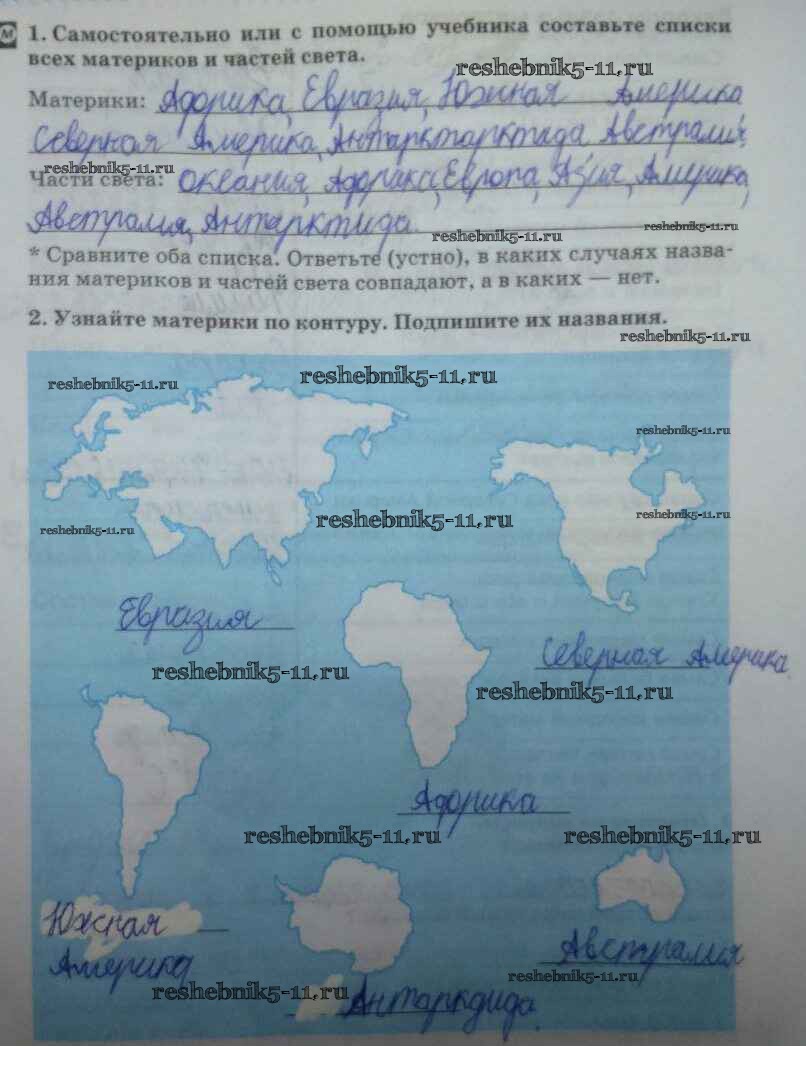 М 1. Самостоятельно или с помощью учебника составьте списки
всех материков и частей света.
reshebnik5-11.ru
Материки: Африка, Евразия, Южная Америка
Северная Америка, Антарктарктида Австралия
reshebnik5-11.ru
Части света: Океания, Африка, Европа, Азия, Америка,
Австралия, Антарктида
reshebnik5-11.ru
reshebnik5-11.ru
* Сравните оба списка. Ответьте (устно), в каких случаях назва-
ния материков и частей света совпадают, а в каких — нет.
2. Узнайте материки по контуру. Подпишите их названия.
reshebnik5-11.ru
reshebnik5-11.ru
reshebnik5-11.ru
reshebnik5-11.ru
reshebnik5-11.ru
reshebnik5-11.ru
reshebnik5-11.ru
Евразия
Северная Америка
reshebnik5-11.ru
reshebnik5-11.ru
Африка
reshebnik5-11.ru
reshebnik5-11.ru
Южная
Америка
Австралия
reshebnik5-11.ru
reshebnik5-11.ru
Антаркдида